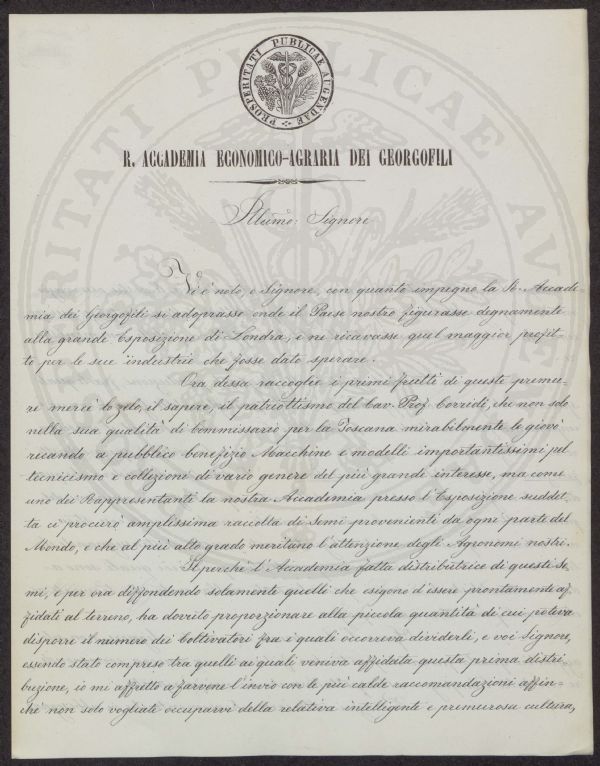 PROSPERITATI PUBLICAE AUGENDAE
R. ACCADEMIA ECONOMICO-AGRARIA DEI GEORGOFILI
Illumo: Signore
Vi è noto, o Signore, con quanto impegno la R. Accade-
mia dei Georgofili si adoprasse onde il Paese nostro figurasse degnamente
alla grande Esposizione di Londra, e ne ricavasse quel maggior profit-
to per le sue industrie che fosse dato sperare.
Ora dessa raccoglie i primi frutti di queste premu-
re mercè lo zelo, il sapere, il patriottismo del Cav. Prof. Corridi, che non solo
nella sua qualità di Commissario per la Toscana mirabilmente le giovò
recando a pubblico benefizio Macchine e modelli importantissimi pel
tecnicismo e collezioni di vario genere del più grande interesse, ma come
uno dei Rappresentanti la nostra Accademia presso l'Esposizione suddet-
ta ci procurò amplissima raccolta di Semi provenienti da ogni parte del
Mondo, e che al più alto grado meritano l'attenzione degli Agronomi nostri.
Il perchè l'Accademia fatta distributrice di questi Se-
mi, e per ora diffondendo solamente quelli che esigono d'essere prontamente af-
fidati al terreno, ha dovuto proporzionare alla piccola quantità di cui poteva
disporre il numero dei Coltivatori fra i quali occorreva dividerli, e voi Signore,
essendo stato compreso tra quelli ai quali veniva affidata questa prima distri-
buzione, io mi affretto a farvene l'invio con le più calde raccomandazioni affin-
chè non solo vogliate occuparvi della relativa intelligente e premurosa cultura,